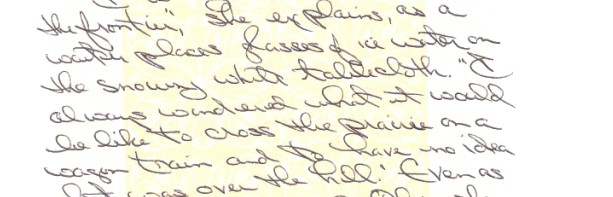 the frontier", she explains, as a
waiter places glasses of ice water on
the snowy white tablecloth. "I
always wondered what it would
be like to cross the prairie on a
wagon train and to have no idea
what was over the hill." Even as